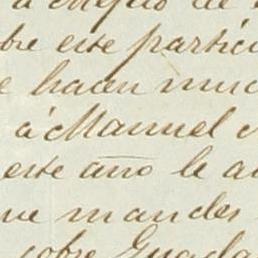 de
bre este partic
hacen muc
á Manuel
este año le a
ue mandes
sobre Guada